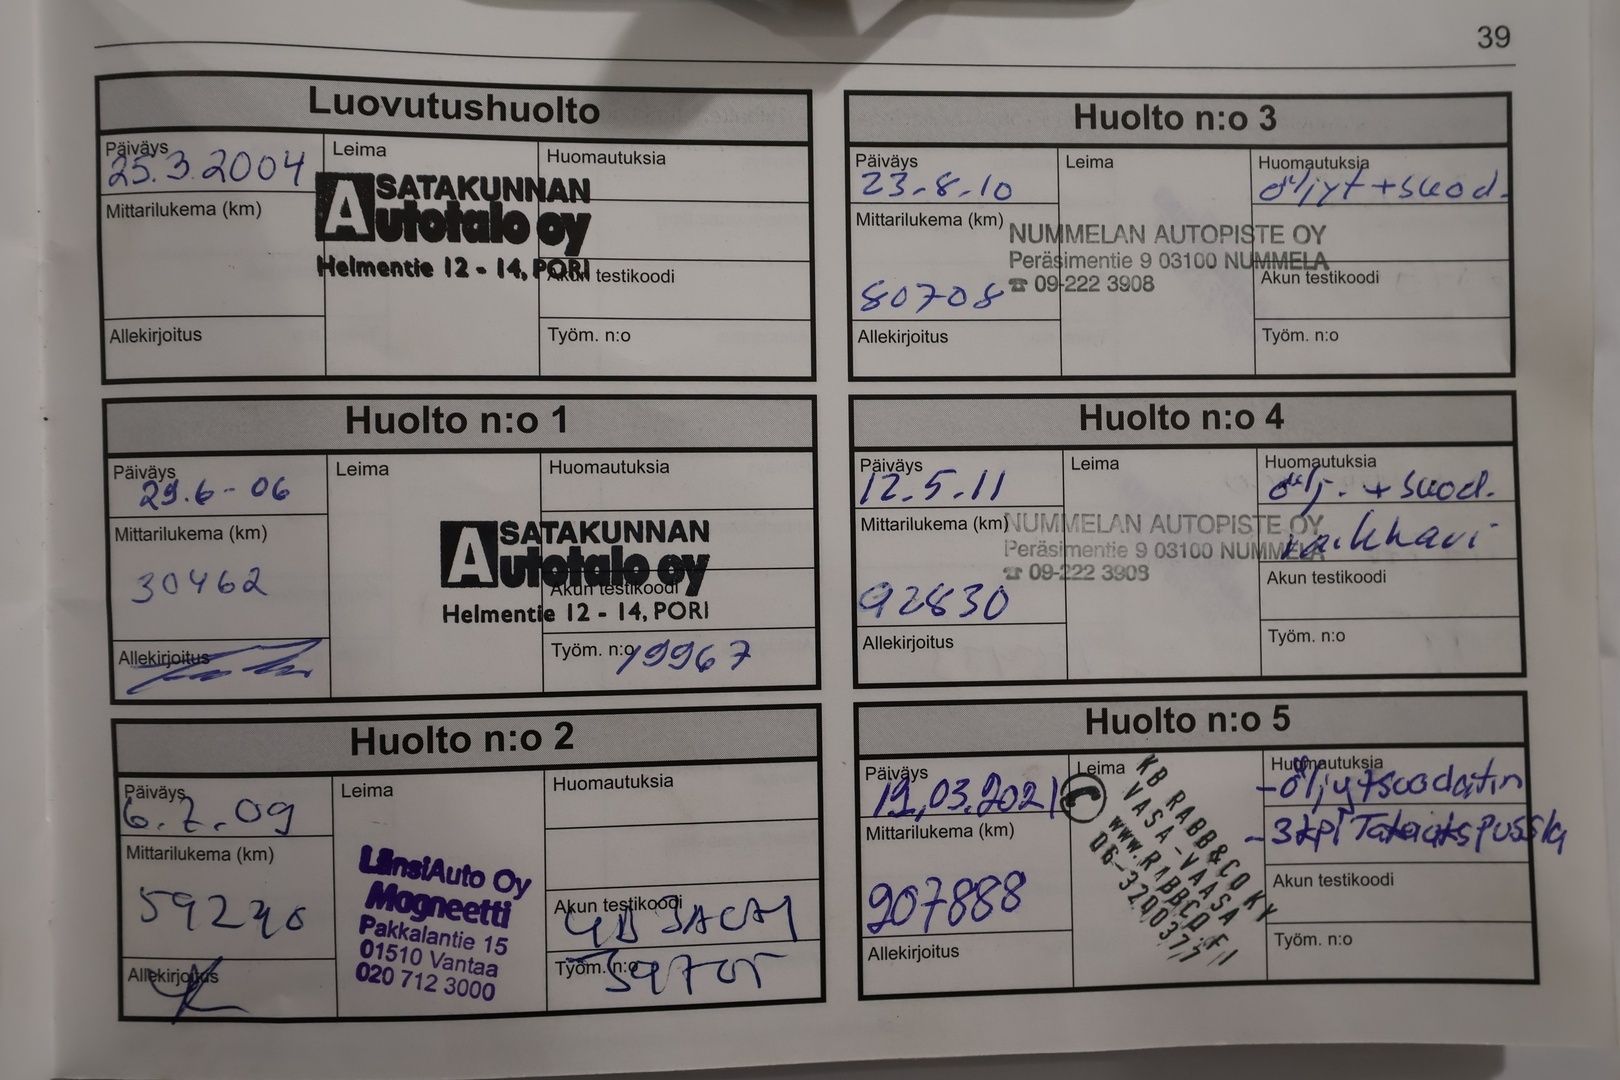 39
Luovutushuolto
Päiväys
25.3.2004
Leima
Huomautuksia
Mittarilukema (km)
A SATAKUNNAN
Autotalo oy
Helmentie 12 - 14, PORI
Akun testikoodi
Allekirjoitus
Työm. n:o
Huolto n:o 1
Päiväys
29.6-06
Leima
Huomautuksia
Mittarilukema (km)
30462
A SATAKUNNAN
Autotalo oy
Helmentie 12 - 14, PORI
Akun testikoodi
Allekirjoitus
Työm. n:o 19967
Huolto n:o 2
Päiväys
6.7.09
Leima
Huomautuksia
Mittarilukema (km)
LänsiAuto Oy
Magneetti
Pakkalantie 15
01510 Vantaa
020 712 3000
Akun testikoodi
Allekirjoitus
Työm. n:o
Huolto n:o 3
Päiväys
23.8.10
Leima
Huomautuksia
öljyt + suod.
Mittarilukema (km)
80708
NUMMELAN AUTOPISTE OY
Peräsimentie 9 03100 NUMMELA
☎ 09-222 3908
Akun testikoodi
Allekirjoitus
Työm. n:o
Huolto n:o 4
Päiväys
12.5.11
Leima
Huomautuksia
ölj. + suod.
Mittarilukema (km)
92830
NUMMELAN AUTOPISTE OY
Peräsimentie 9 03100 NUMMELA
☎ 09-222 3908
Akun testikoodi
Allekirjoitus
Työm. n:o
Huolto n:o 5
Päiväys
Leima
Huomautuksia
-öljyt+suodatin
-3kpl
Mittarilukema (km)
207888
KB RABB&CO KY
VASA-VAASA
www.RABBCO.FI
06-3200375
Akun testikoodi
Allekirjoitus
Työm. n:o